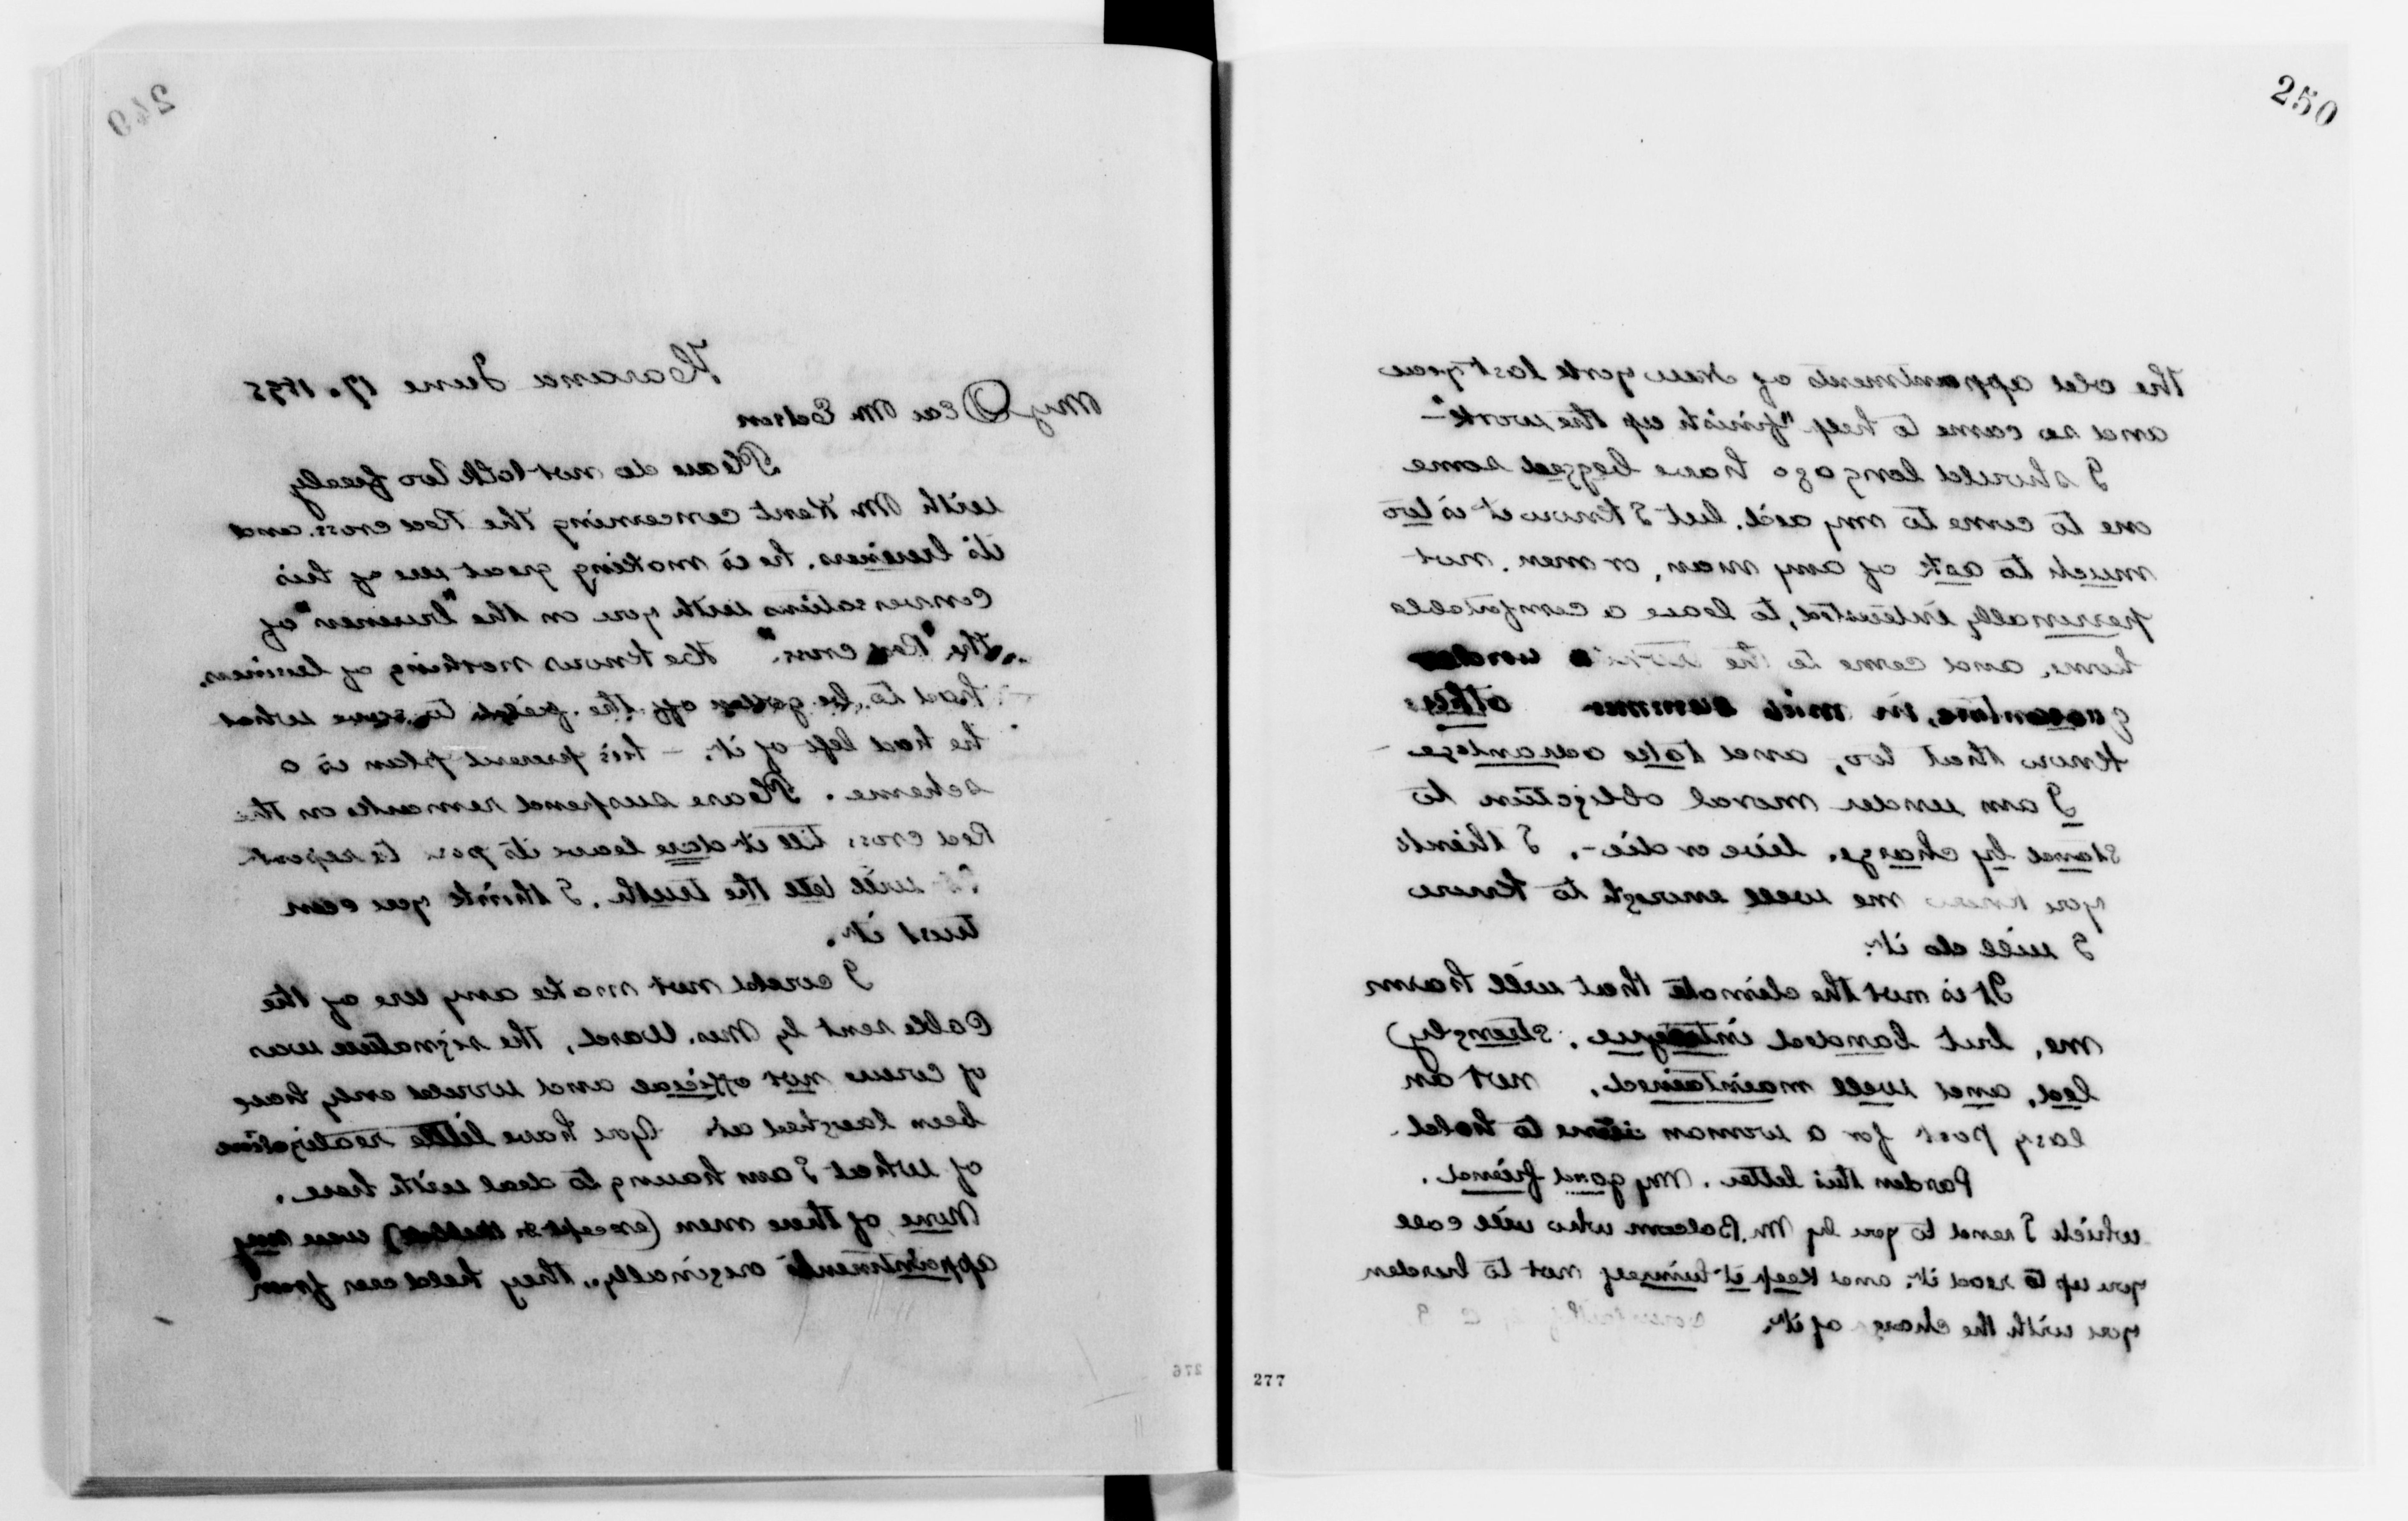 249
Havana June 17. 1898
My Dear Mr Edson
Please do not talk too freely
with Mr Kent concerning the Red cross. and
its business. he is making great use of his
conversations with you on the "business" of
the "Red cross." He knows nothing of business.
had to be gotten off the field to save what
he had left of it. — his present plan is a
scheme. Please suspend remarks on the
Red cross till it dare leave its post to report
It will tell the truth. I think you can
trust it.
I could not make any use of the
Cable sent by Mrs. Ward, the signature was
of course not official and would only have
been laughed at. You have little realization
of what I am having to deal with here.
None of these men (except Dr) were my
appointments originally, they held over from
276
250
the old appointments of New york last year
and so came to help "finish up the work" —
I should long ago have begged some
one to come to my aid. but I know it is too
much to ask of any man, or men. not
personally interested, to leave a comfortable
home, and come to the under
quarantine, in mid summer others
know that too, and take advantage —
I am under moral obligation to
stand by charge. live or die —. I think
you know me well enough to know
I will do it.
It is not the climate that will harm
me, but banded intrigue. strongly
led, and well maintained. not an
easy post for a woman alone to hold.
Pardon this letter. My good friend.
which I send to you by Mr. Balcom who will call
you up to read it. and keep it himself not to burden
you with the charge of it.
277